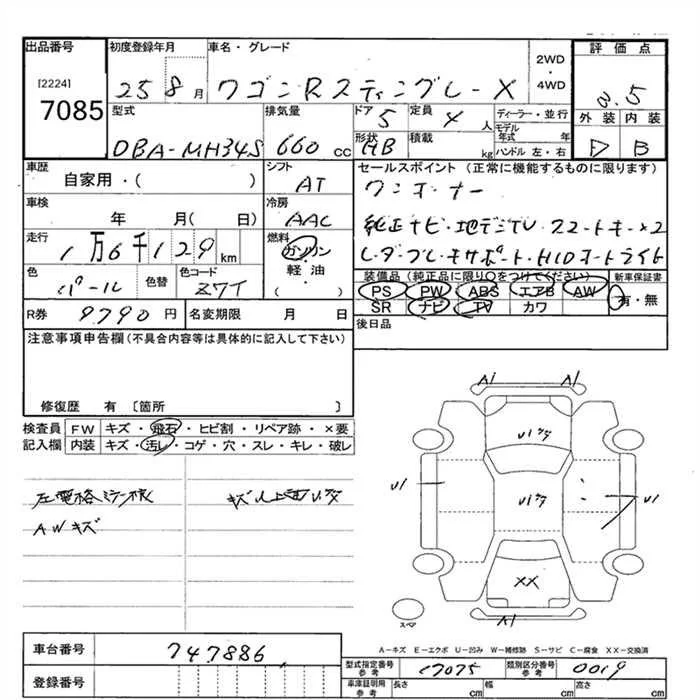 出品番号
[2224]
7085
初度登録年月
25 8 月
車名・グレード
ワゴンRスティングレーX
2WD
・
4WD
評価点
3.5
外装 内装
D B
型式
DBA-MH34S
排気量
660 cc
ドア
5
定員
4 人
ディーラー・並行
形状
HB
積載
kg
モデル年式 年
ハンドル 左・右
車歴
自家用・( )
シフト
AT
車検
年 月( 日)
冷房
AAC
走行
1万6千129 km
燃料
ガソリン
・
軽・油
・
( )
色
パール
色替
色コード
ZWイ
R券 9790 円
名変期限 月 日
セールスポイント(正常に機能するものに限ります)
ワンオーナー
純正ナビ・地デジTV・スマートキー×2
レーダーブレーキサポート・HIDオートライト
装備品(純正品に限り○をつけてください)
PS PW ABS エアB AW
SR ナビ TV カワ
新車保証書
有・無
後日品
注意事項申告欄(不具合内容等は具体的に記入して下さい)
修復歴 有 〔箇所 〕
検査員 FW キズ・飛石・ヒビ割・リペア跡・×要
記入欄 内装 キズ・汚レ・コゲ・穴・スレ・キレ・破レ
左電格ミラー
AWキズ
A1 A1
U1
U1
U1
XX
A1
スペア
A-キズ E-エクボ U-凹み W-補修跡 S-サビ C-腐食 XX-交換済
車台番号 747886
登録番号
型式指定番号 参考 17075
類別区分番号 参考 0019
車庫証明用 参考 長さ cm 幅 cm 高さ cm